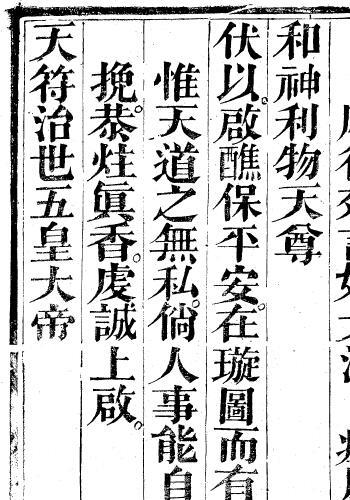 和神利物天尊
伏以。啟醮保平安。在璇圖而有
惟天道之無私。倘人事能自
挽。恭炷眞香。虔誠上啟。
天符治世五皇大帝